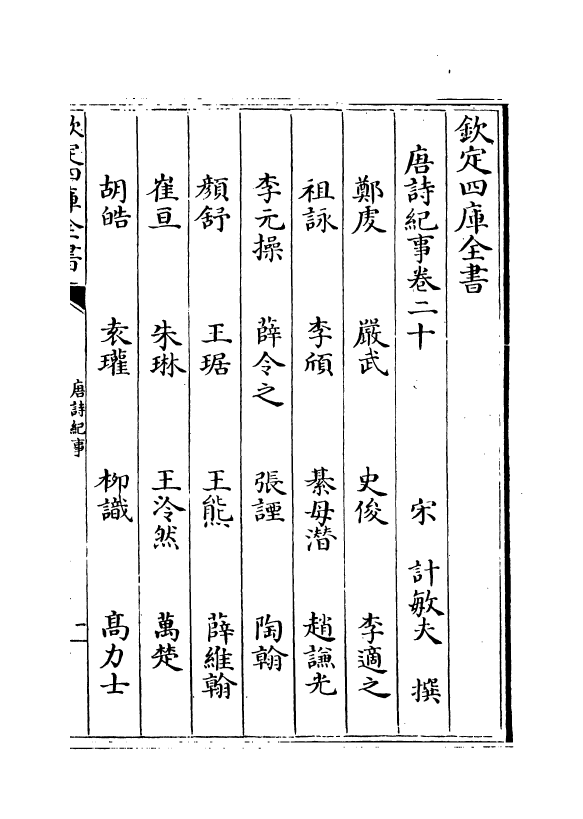 欽定四庫全書
唐詩紀事卷二十 宋 計敏夫 撰
鄭虔 嚴武 史俊 李適之
祖詠 李頎 綦毋潛 趙謙光
李元操 薛令之 張諲 陶翰
顔舒 王琚 王熊 薛維翰
崔亘 朱琳 王泠然 萬楚
胡皓 袁瓘 柳識 髙力士
欽定四庫全書
唐詩紀事